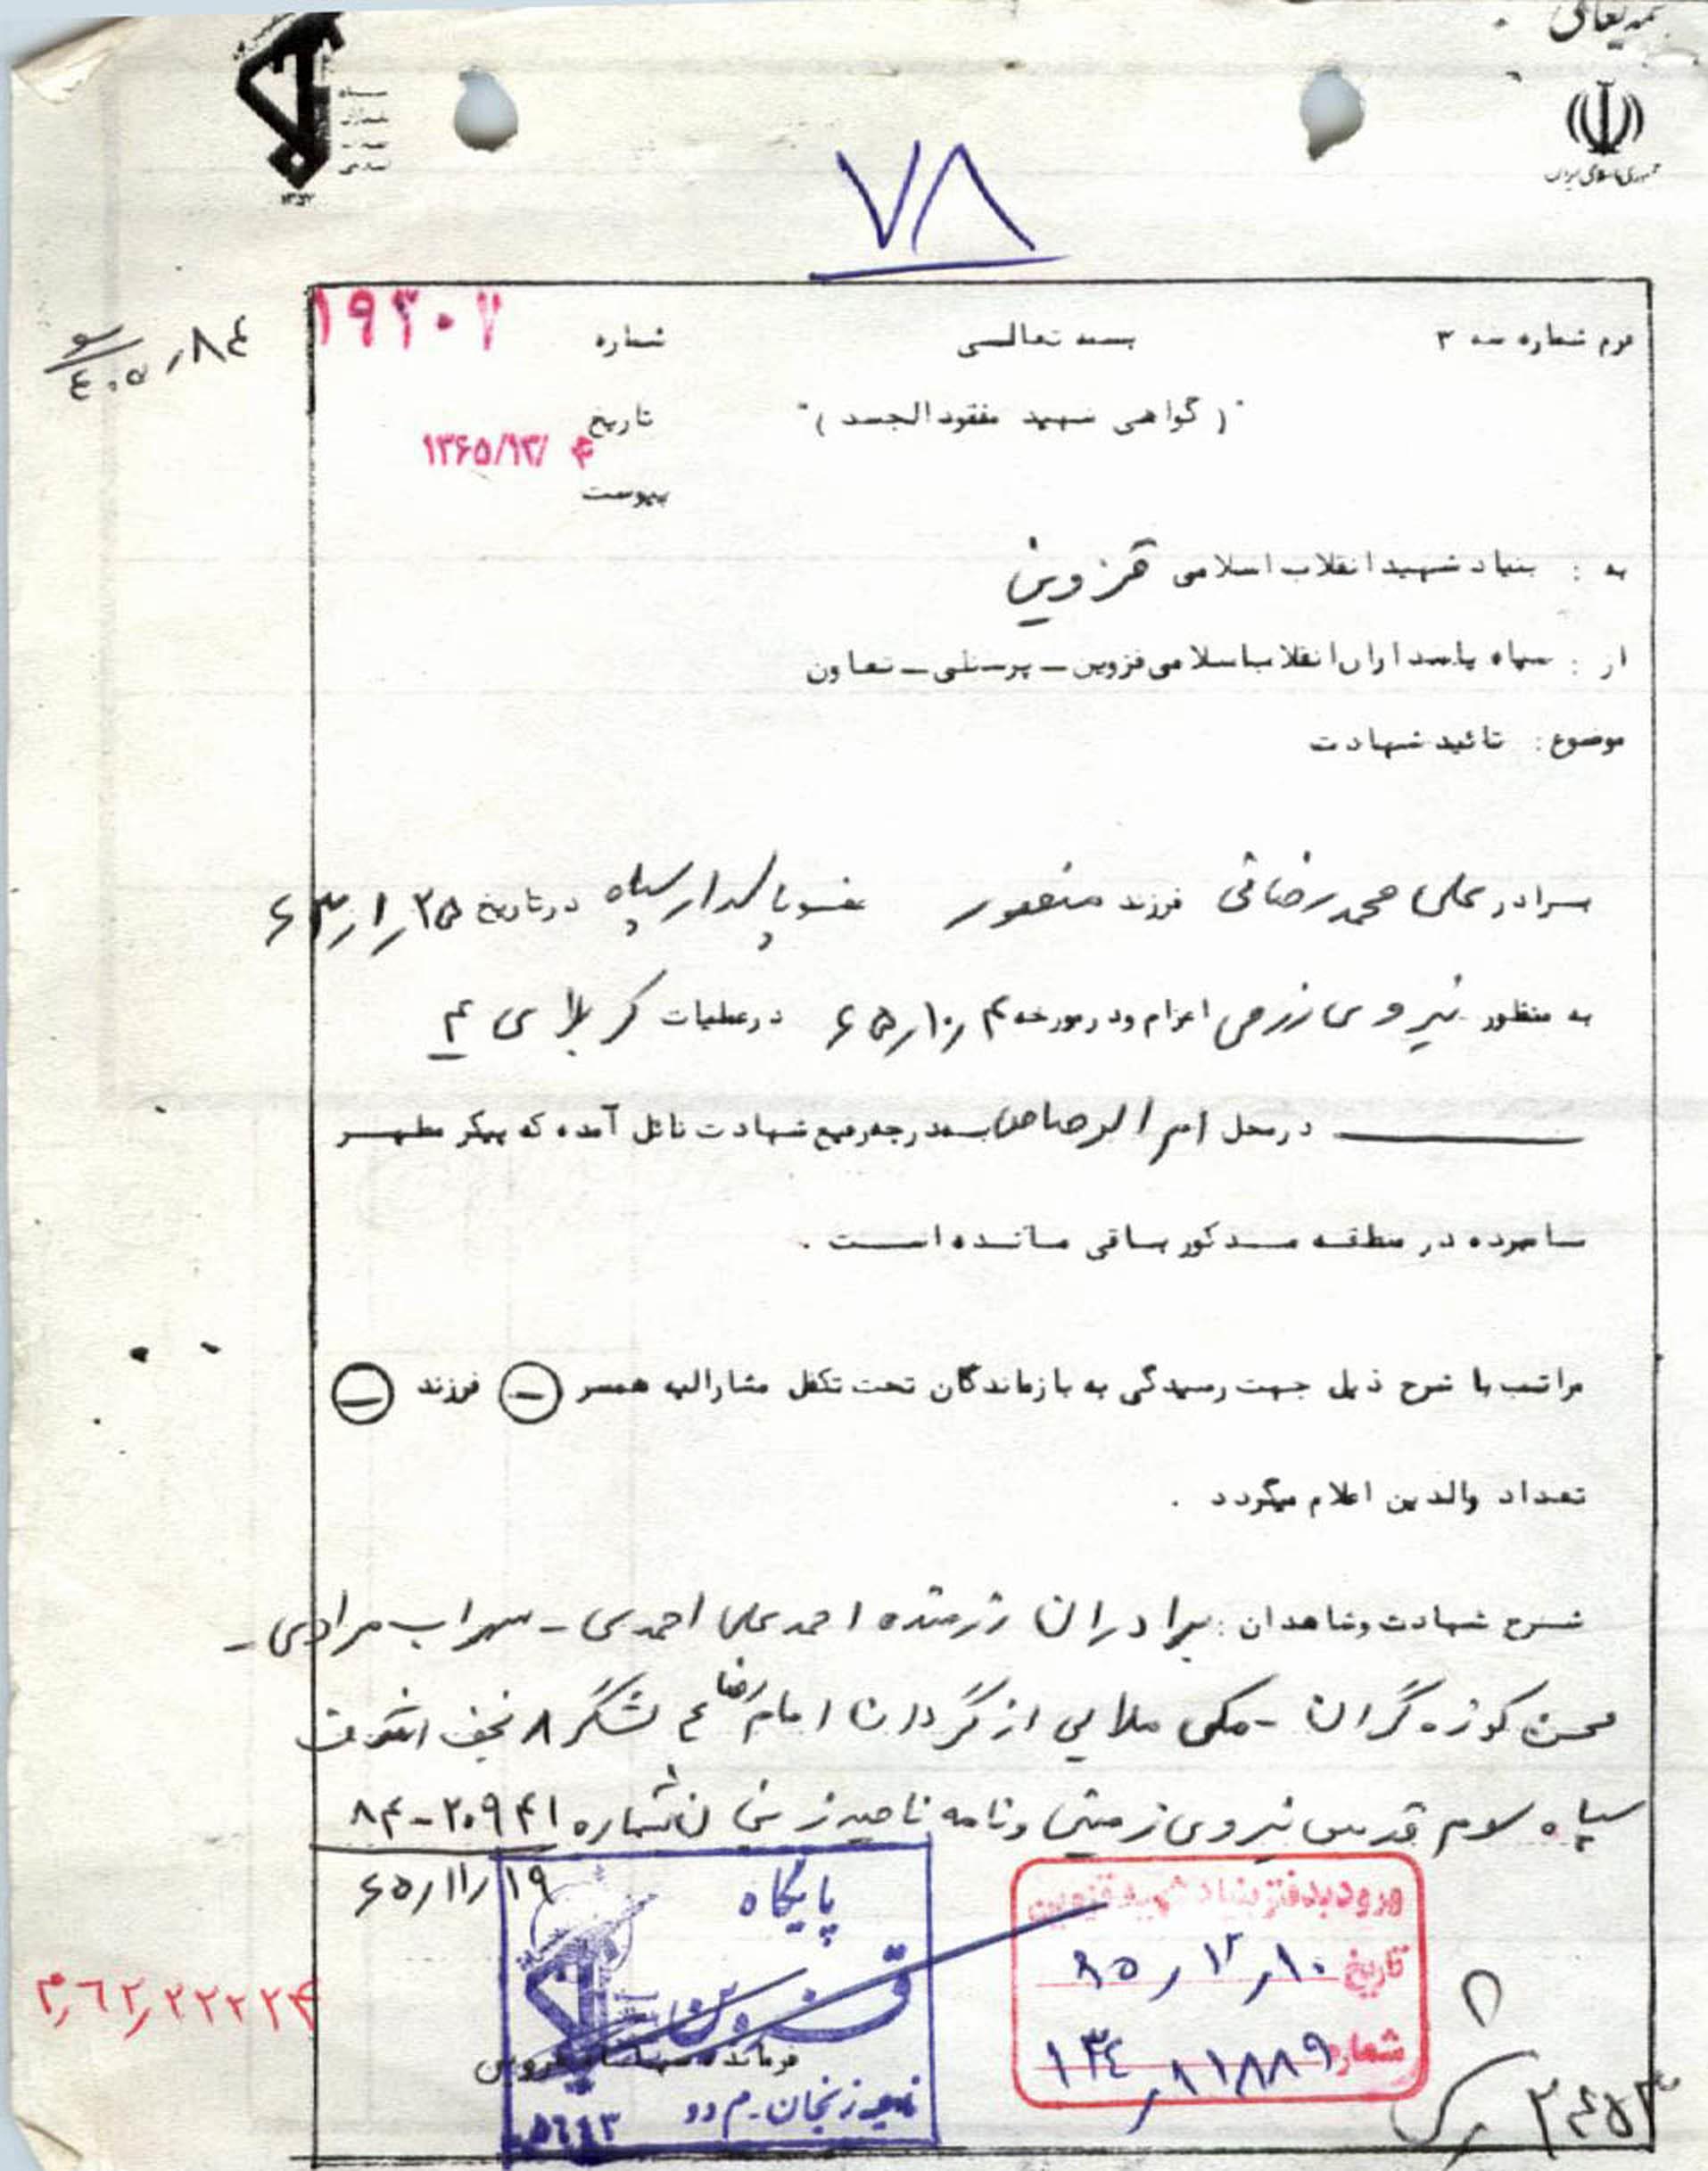 بسمه تعالی
جمهوری اسلامی ایران
۷۸
فرم شماره سه ۳
بسمه تعالی
شماره ۱۹۳۰۷
"( گواهی شهید مفقود الجسد )"
تاریخ ۱۳۶۵/۱۲/ ۴
پیوست
به : بنیاد شهید انقلاب اسلامی قزوین
از : سپاه پاسداران انقلاب اسلامی قزوین ـ پرسنلی ـ تعاون
موضوع : تائید شهادت
برادر علی محمد رضائی فرزند منصور عضو پاسدار سپاه در تاریخ ۶۳/۱/۲۵
به منظور نیروی رزمی اعزام و در مورخه ۶۵/۱۰/۴ در عملیات کربلای ۴
در محل ام الرصاص به درجه رفیع شهادت نائل آمده که پیکر مطهر
نامبرده در منطقه مذکور باقی مانده است .
مراتب با شرح ذیل جهت رسیدگی به بازماندگان تحت تکفل مشارالیه همسر ـ فرزند ـ
تعداد والدین اعلام میگردد .
شرح شهادت و شاهدان : برادران رزمنده احمد علی احمدی ـ سهراب مرادی ـ
محسن کوزه گران ـ مکی ملایی از گردان امام رضا ع لشگر ۸ نجف اشرف
سپاه سوم قدس نیروی زمینی و نامه ناحیه زنجان بشماره ۲۰۹۴۱-۸۴
۶۵/۱۱/۱۹
پایگاه
قزوین
فرمانده سپاه قزوین
ناحیه زنجان ـ م دو
ورود بدفتر بنیاد شهید قزوین
تاریخ ۶۵/۱۲/۱۰
شماره ۱۳۴/۱۱۸۸۹